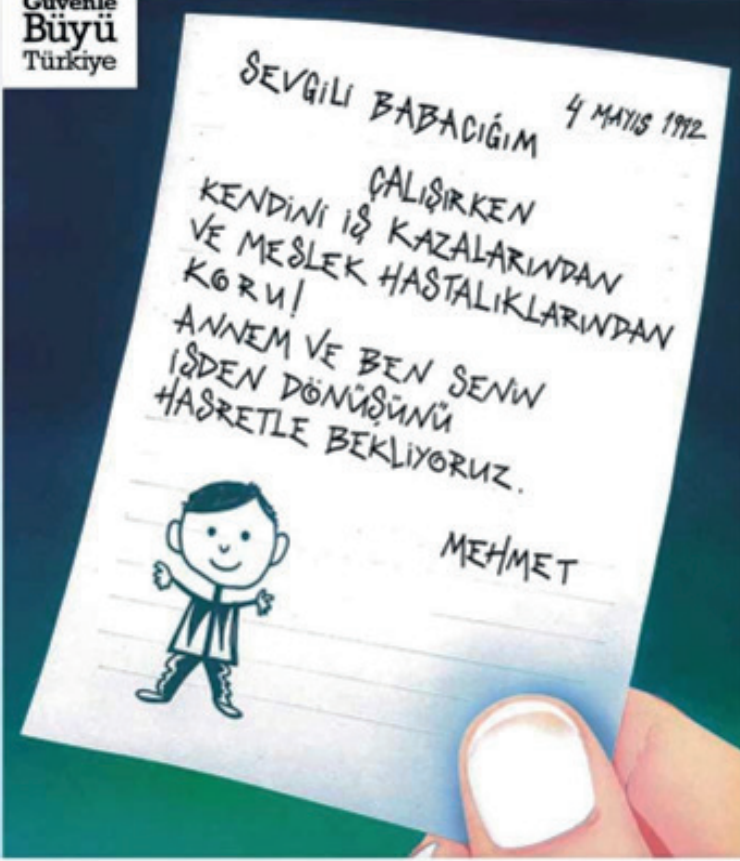 Güvenle
Büyü
Türkiye
SEVGİLİ BABACIĞIM
4 MAYIS 1992
ÇALIŞIRKEN
KENDİNİ İŞ KAZALARINDAN
VE MESLEK HASTALIKLARINDAN
KORU!
ANNEM VE BEN SENİN
İŞDEN DÖNÜŞÜNÜ
HASRETLE BEKLİYORUZ.
MEHMET